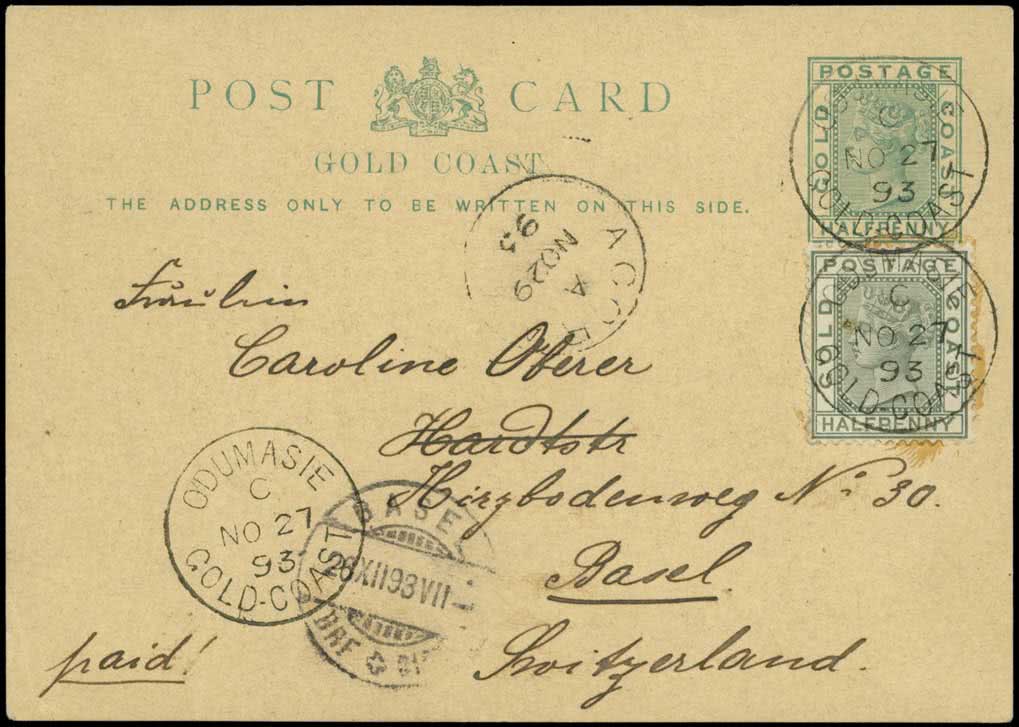 POST CARD
GOLD COAST
THE ADDRESS ONLY TO BE WRITTEN ON THIS SIDE.
POSTAGE
GOLD COAST
HALFPENNY
C
NO 27
93
GOLD-COAST
POSTAGE
GOLD COAST
HALFPENNY
ODUMASIE
C
NO 27
93
GOLD-COAST
ACCRA
A
NO 29
93
Fräulein
Caroline Oberer
Hardtstr
Hirzbodenweg No 30.
Basel
Switzerland.
ODUMASIE
C
NO 27
93
GOLD-COAST
BASEL
26XII93VII-
BRF
paid!